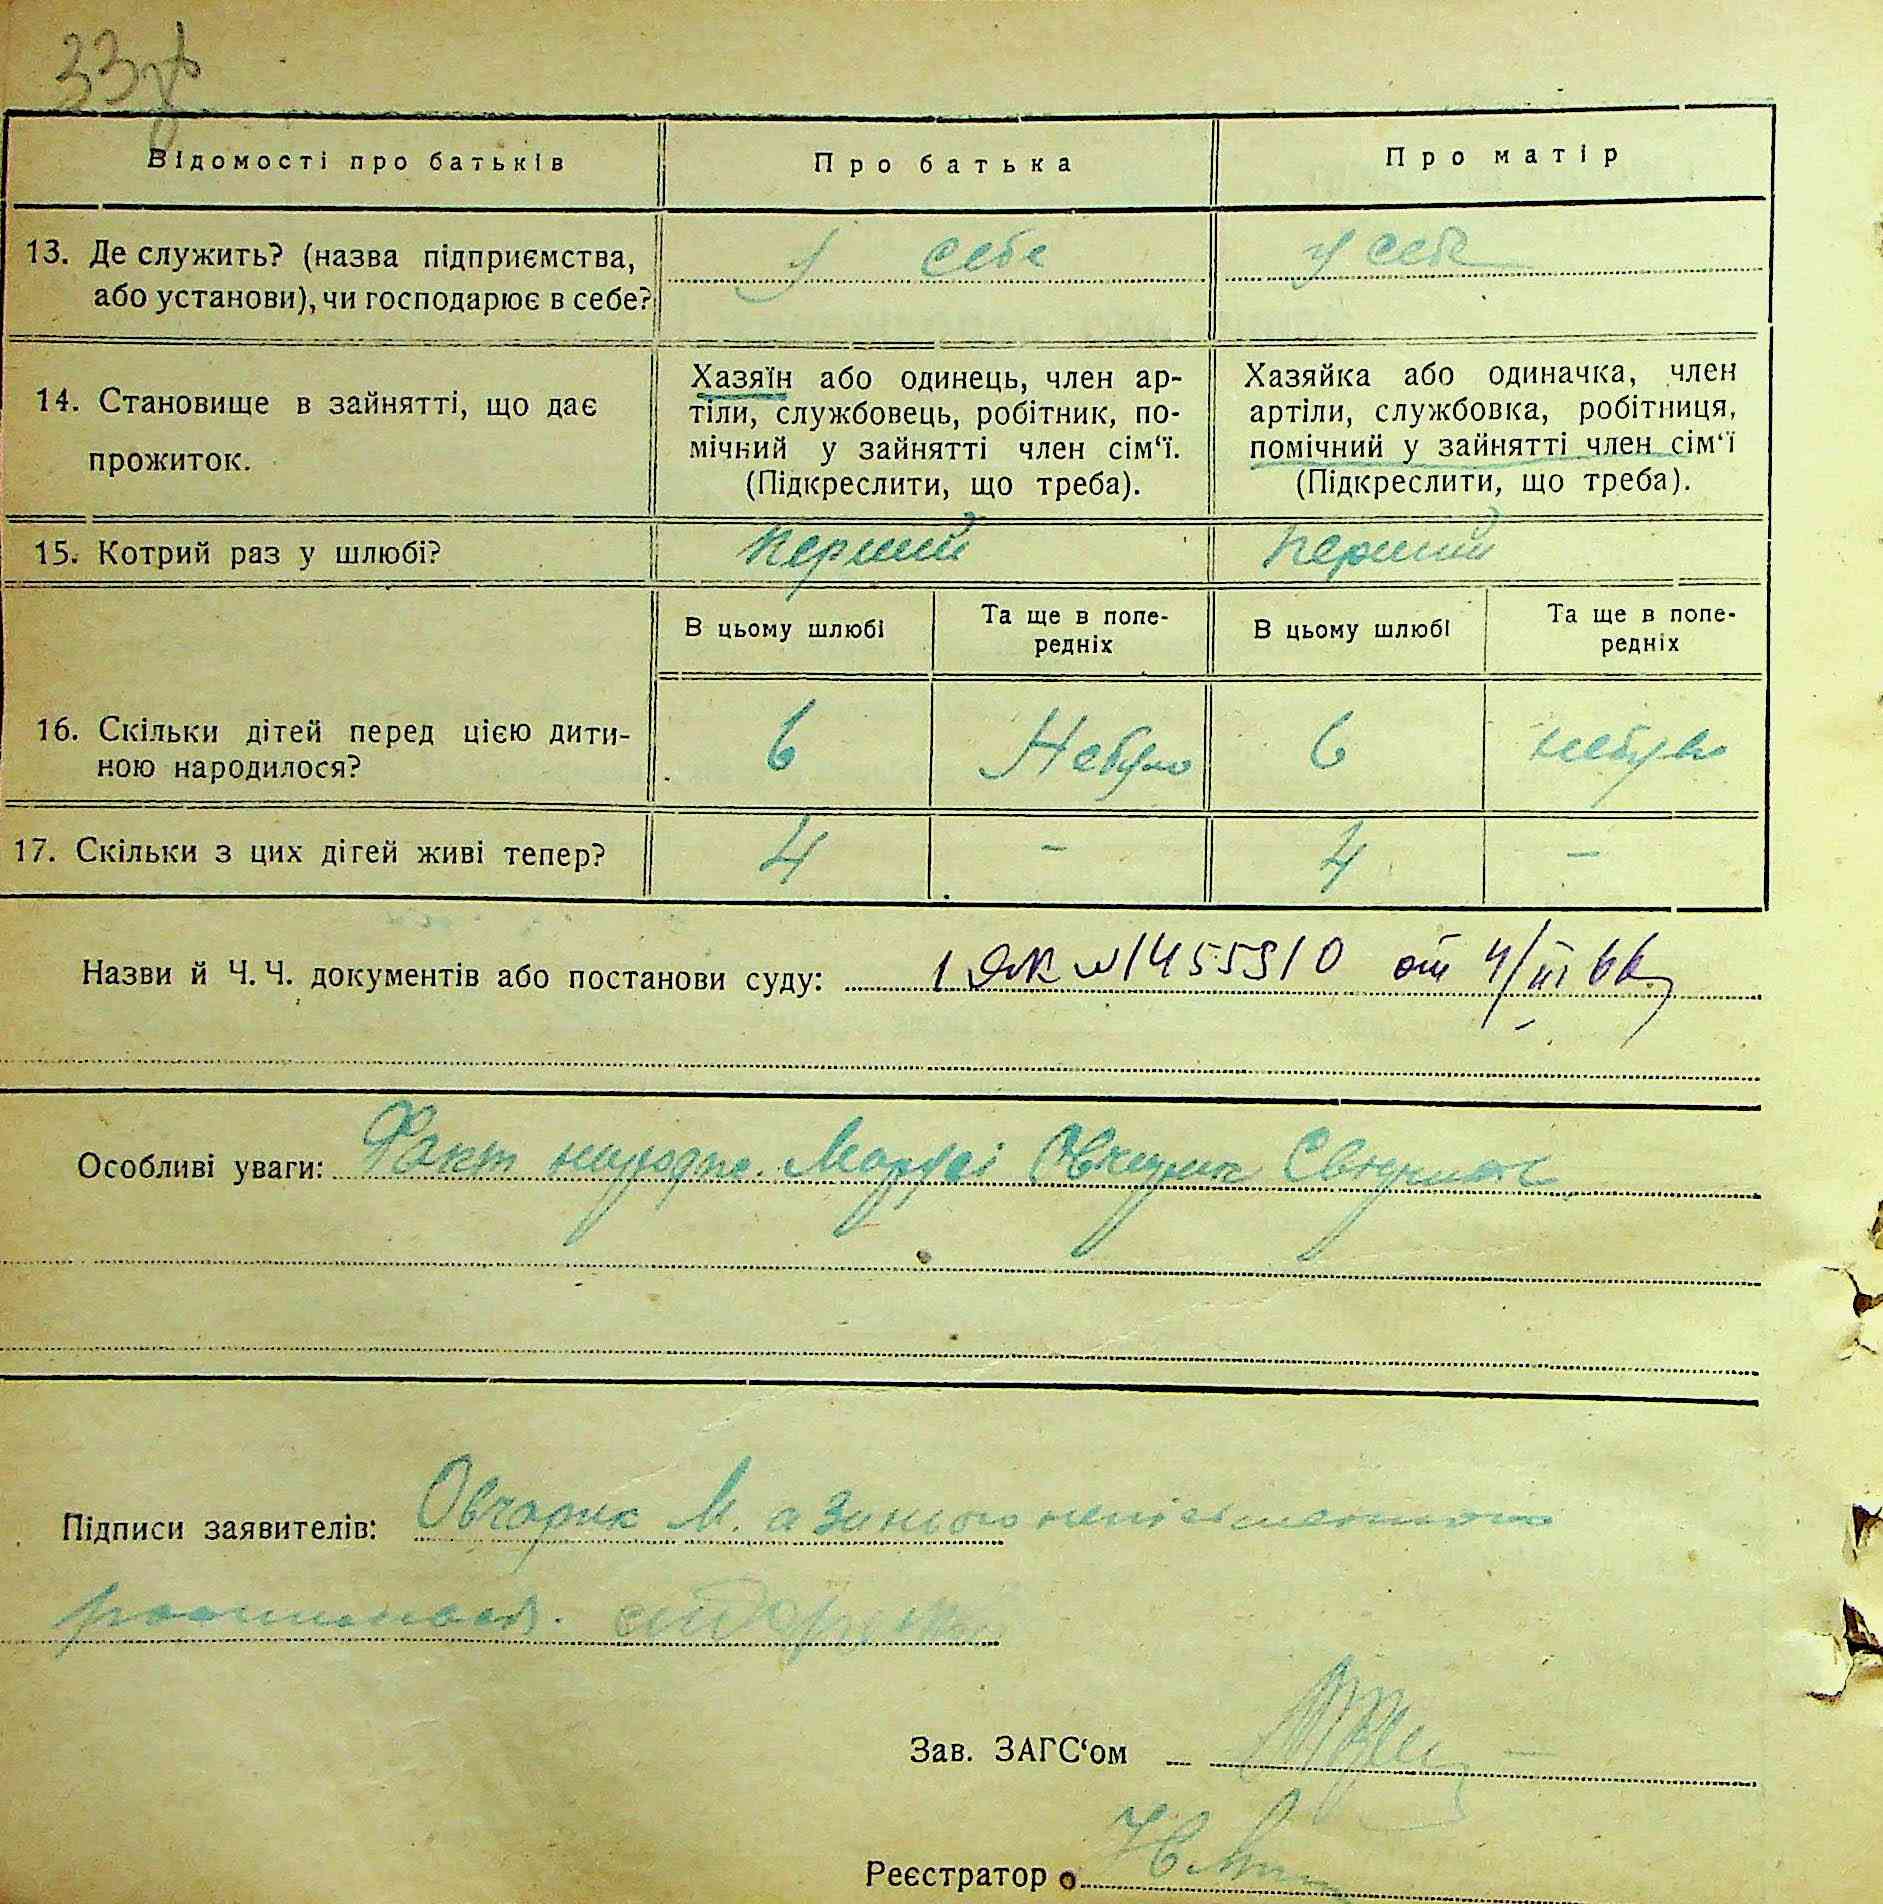 33
Відомості про батьків
Про батька
Про матір
13. Де служить? (назва підприємства,
або установи), чи господарює в себе?
у себе
у себе
14. Становище в зайнятті, що дає
прожиток.
Хазяїн або одинець, член ар-
тіли, службовець, робітник, по-
мічний у зайнятті член сім‘ї.
(Підкреслити, що треба).
Хазяйка або одиначка, член
артіли, службовка, робітниця,
помічний у зайнятті член сім‘ї
(Підкреслити, що треба).
15. Котрий раз у шлюбі?
перший
перший
В цьому шлюбі
Та ще в попе-
редніх
В цьому шлюбі
Та ще в попе-
редніх
16. Скільки дітей перед цією дити-
ною народилося?
6
Небуло
6
небуло
17. Скільки з цих дітей живі тепер?
4
-
4
-
Назви й Ч. Ч. документів або постанови суду: 1 ЯК № 1455910 от 4/III 66
Особливі уваги: Факт народж. Марусі Овчарик
Підписи заявителів: Овчарик М. а за нього неписьменного
росписався.
Зав. ЗАГС‘ом
Реєстратор